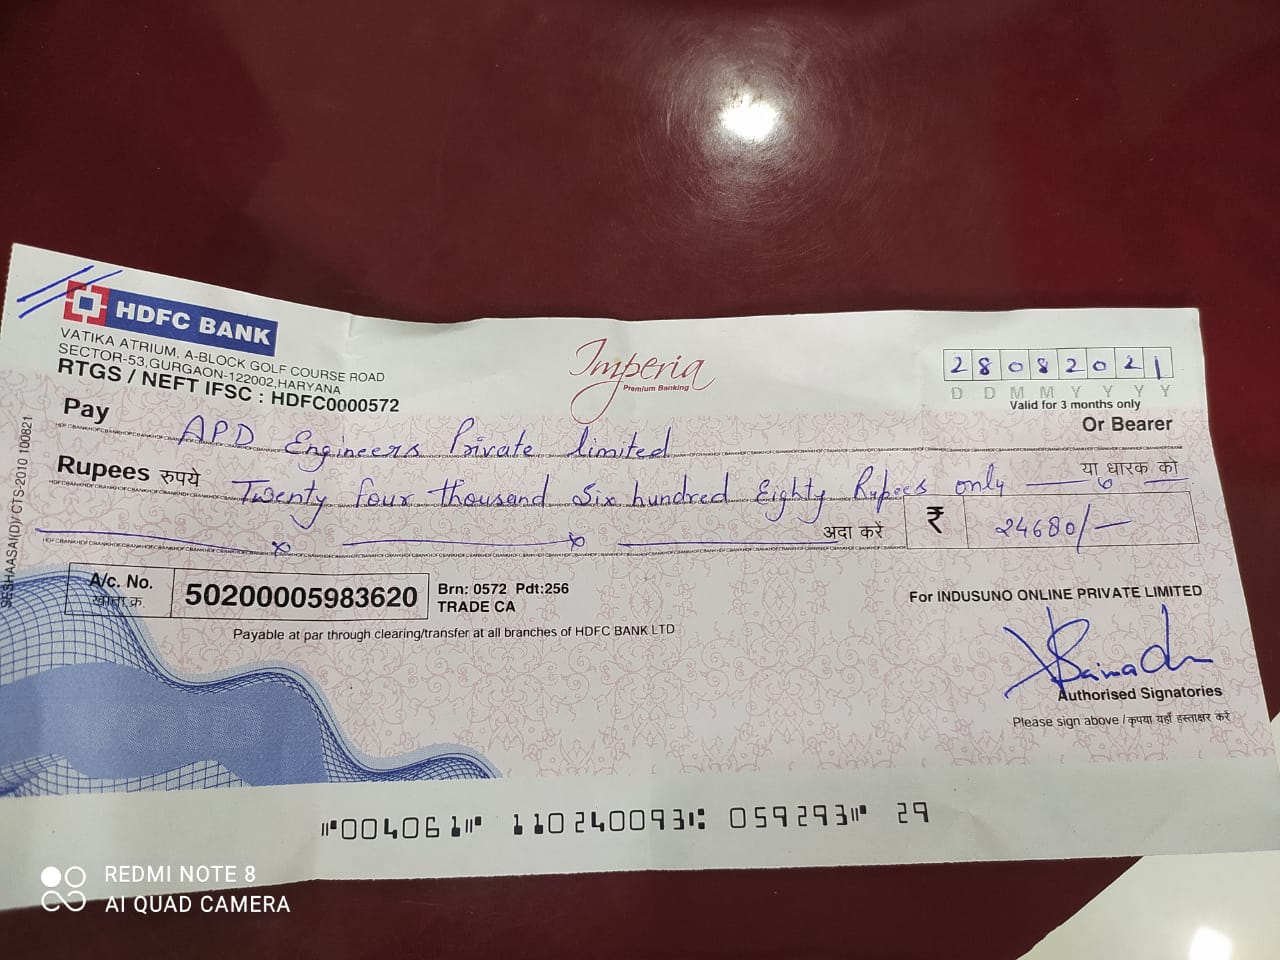 HDFC BANK
VATIKA ATRIUM, A-BLOCK GOLF COURSE ROAD
SECTOR-53,GURGAON-122002,HARYANA
RTGS / NEFT IFSC : HDFC0000572
Imperia
Premium Banking
28082021
D D M M Y Y Y Y
Valid for 3 months only
Pay APD Engineers Private limited Or Bearer
या धारक को
Rupees रुपये Twenty four thousand Six hundred Eighty Rupees only
अदा करें ₹ 24680/-
A/c. No.
खाता क्र.
50200005983620
Brn: 0572 Pdt:256
TRADE CA
Payable at par through clearing/transfer at all branches of HDFC BANK LTD
For INDUSUNO ONLINE PRIVATE LIMITED
Authorised Signatories
Please sign above / कृपया यहाँ हस्ताक्षर करें
SESHAASAI(D)/ CTS-2010 100821
⑈004061⑈ 110240093⑆ 059293⑈ 29
REDMI NOTE 8
AI QUAD CAMERA